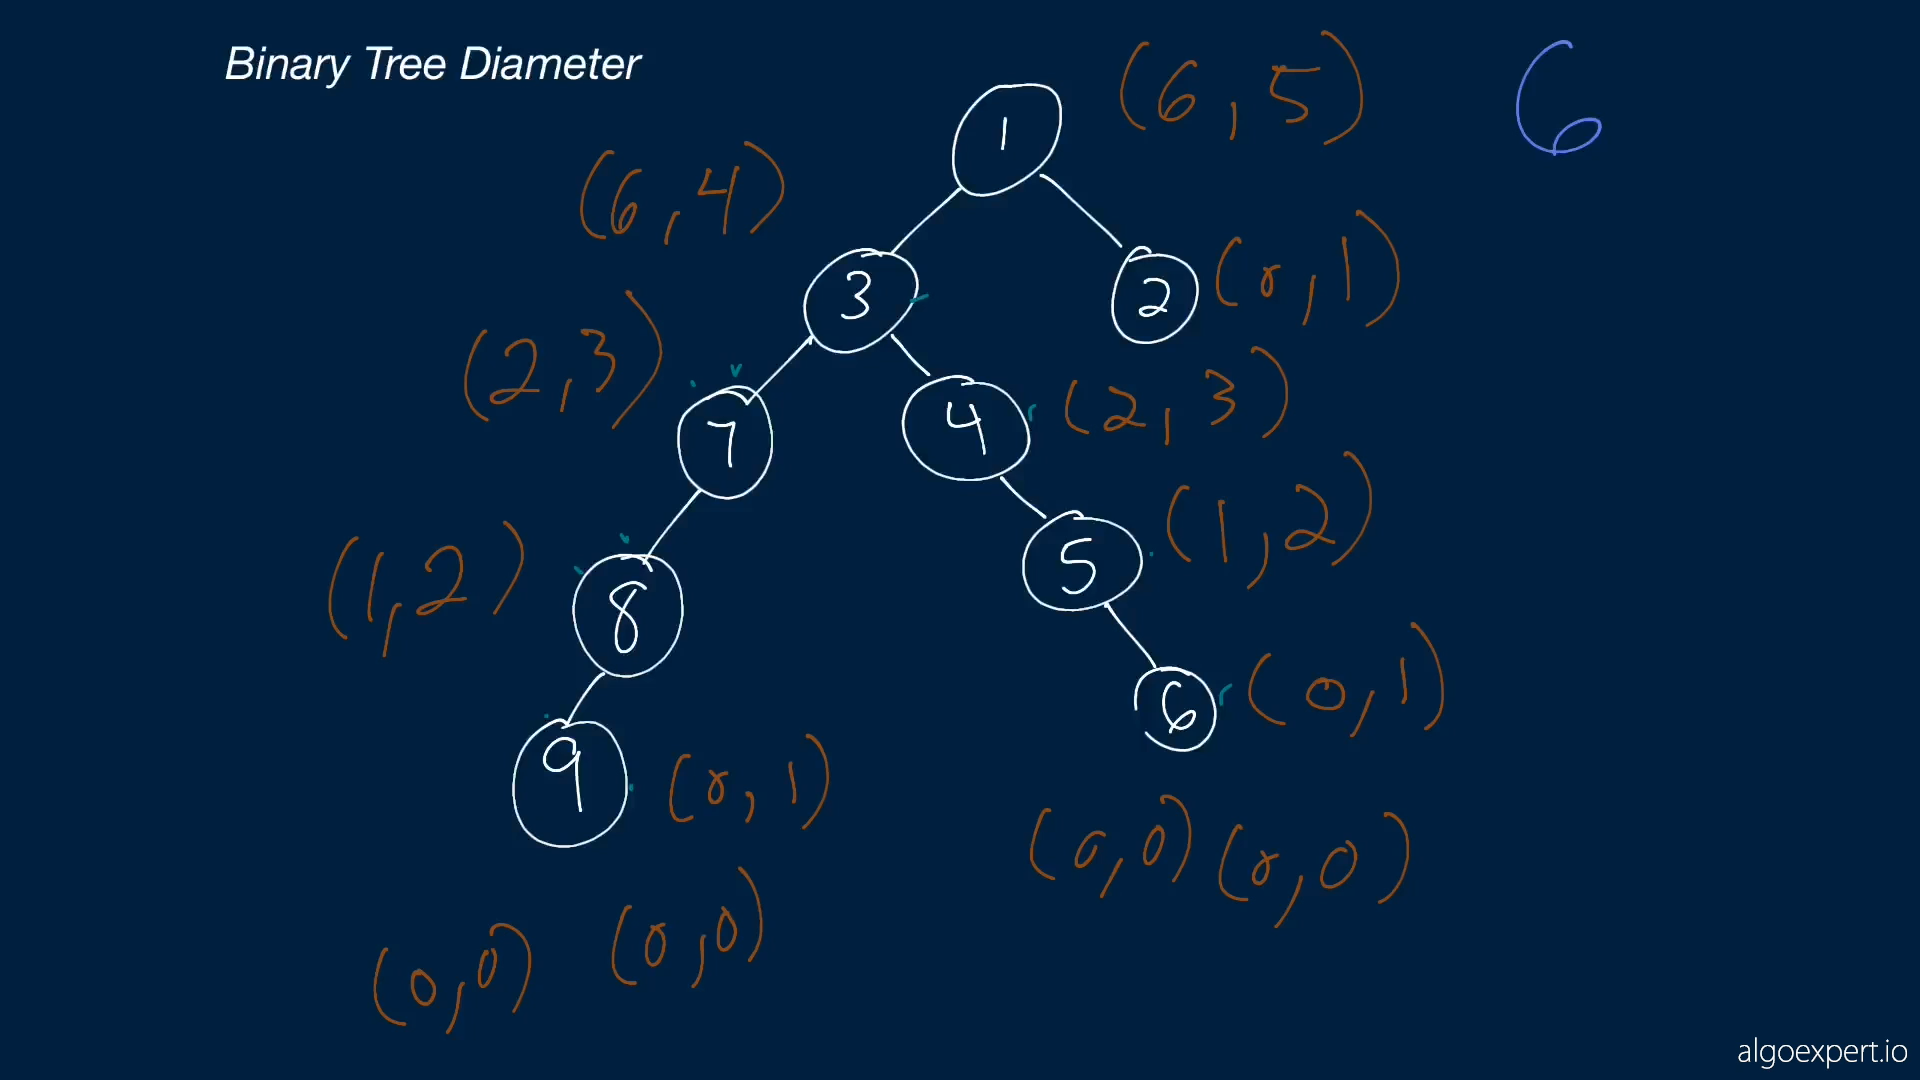 Binary Tree Diameter
(6,5)
6
1
(6,4)
3
2
(0,1)
(2,3)
7
4
(2,3)
(1,2)
8
5
(1,2)
6
(0,1)
9
(0,1)
(0,0) (0,0)
(0,0) (0,0)
algoexpert.io